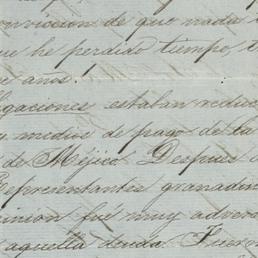 conviccion de que nada
que he perdido tiempo, t
e años.
ligaciones estaban reduc
y medios de pago de la
de Méjico. Despues
Representantes granadin
pinion fué muy advers
aquella deuda. Fueron